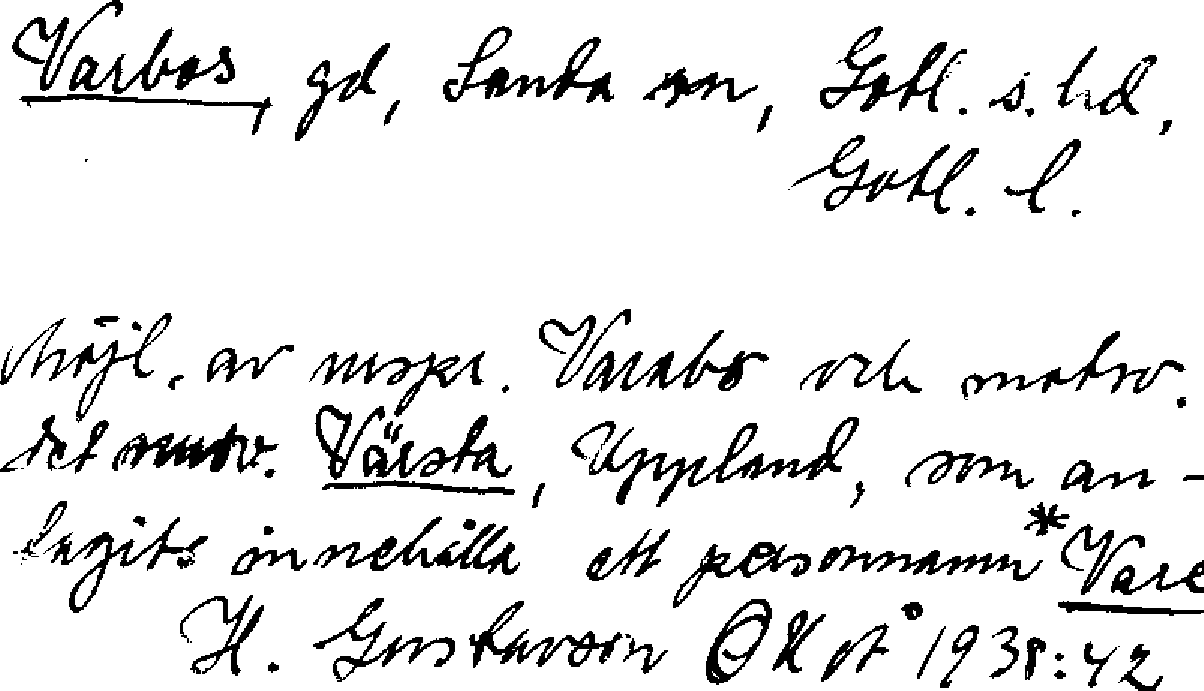 Varbos, gd, Sanda sn, Gotl. s. hd,
Gotl. l.
Möjl. av urspr. Varabo och motsv.
det nutv. Värsta, Uppland, som an-
tagits innehålla ett personnamn *Vare
H. Gustavson 1938:42